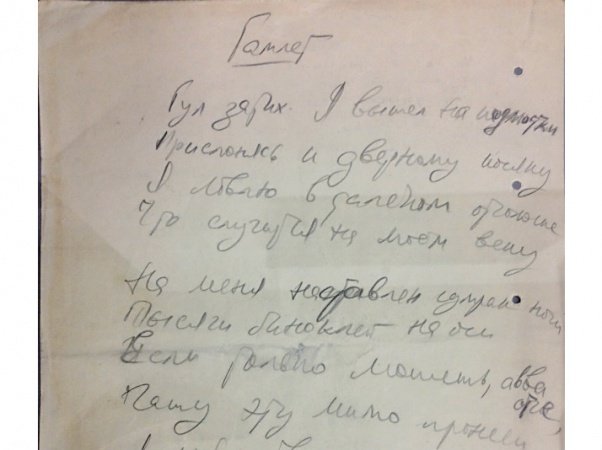 Гамлет
Гул затих. Я вышел на подмостки
Прислонясь к дверному косяку
Я ловлю в далеком отголоске
Что случится на моем веку
На меня наставлен сумрак ночи
Тысячи биноклей на оси
Если только можешь, авва
отче,
Чашу эту мимо пронеси